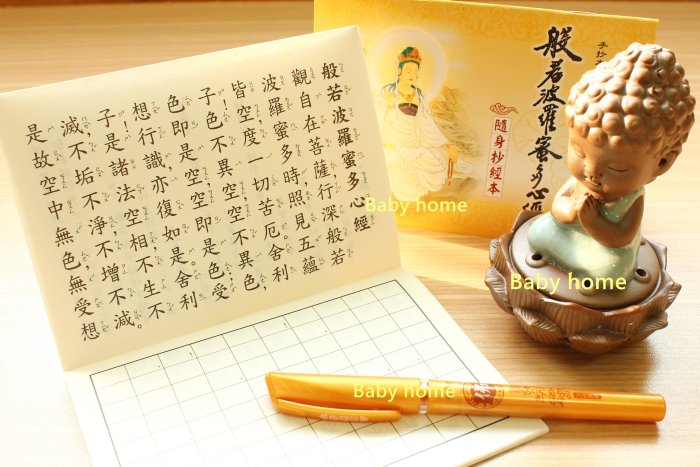 般若波羅蜜多心經
觀自在菩薩,行深般若
波羅蜜多時,照見五蘊
皆空,度一切苦厄。舍利
子!色不異空,空不異色,
色即是空,空即是色,受
想行識,亦復如是。舍利
子!是諸法空相,不生不
滅,不垢不淨,不增不減。
是故空中無色,無受想
手抄
般若波羅蜜多心經
隨身抄經本
Baby home
Baby home
Baby home